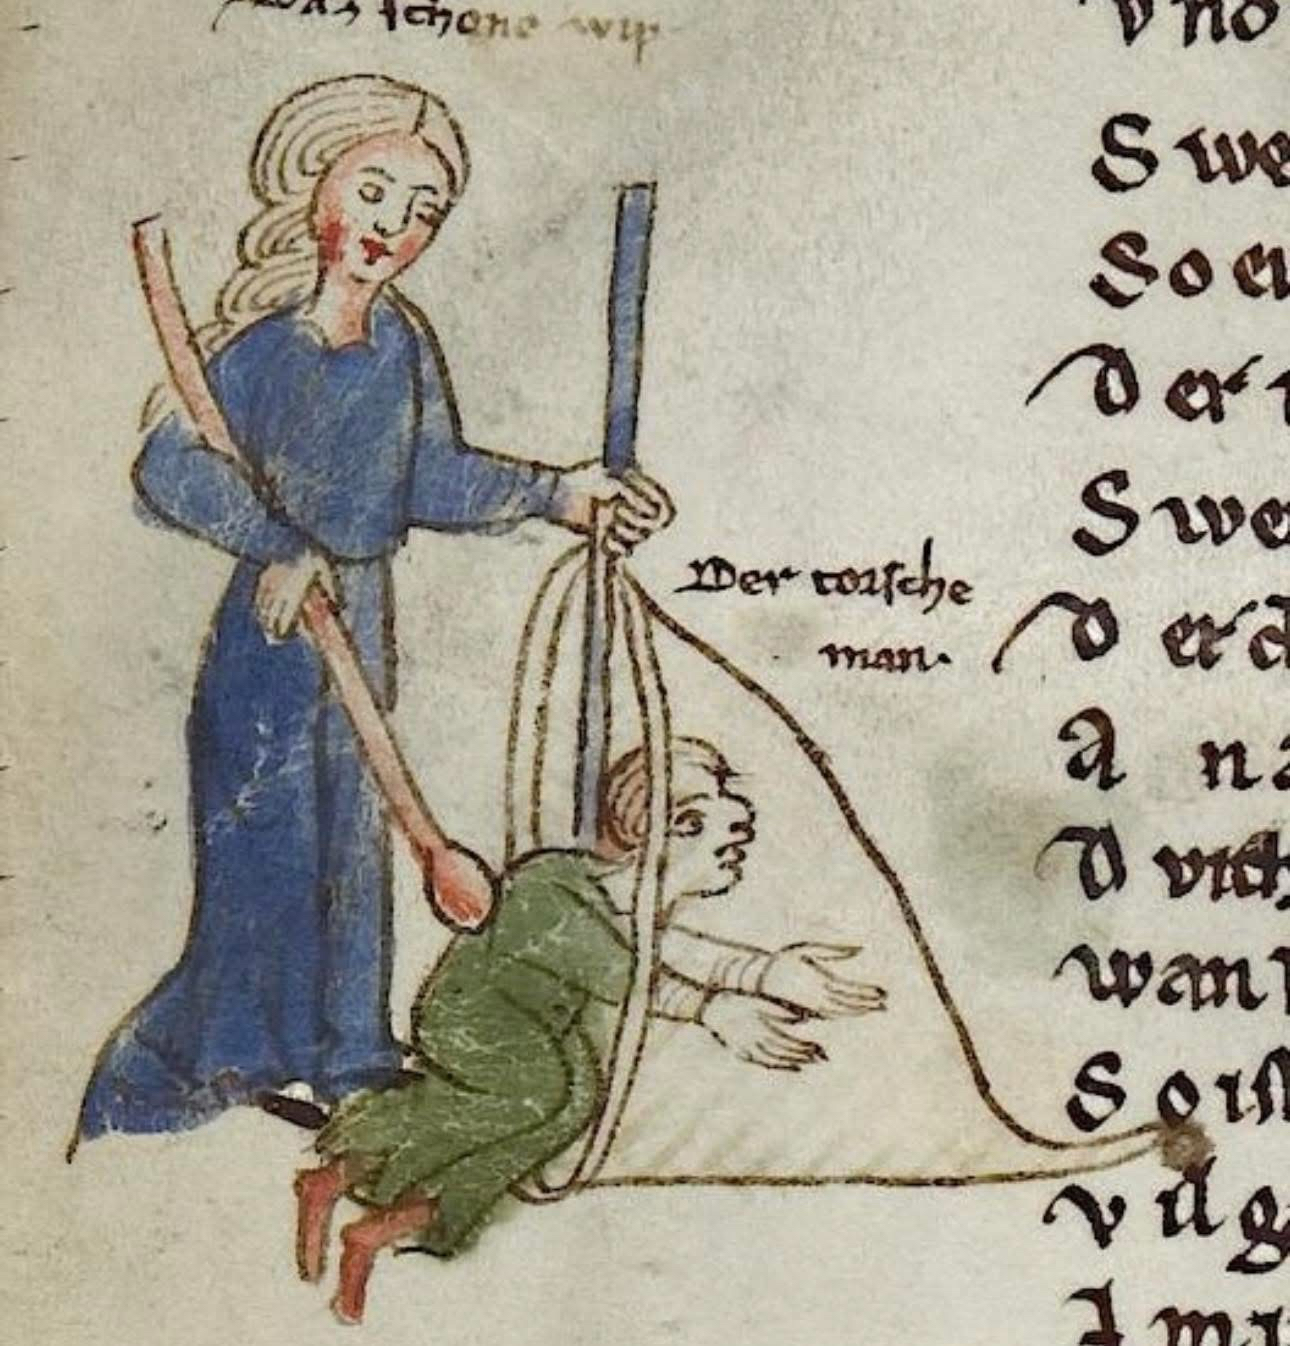 Daz schone wip
Der torsche
man.
vnd
Swe
So ei
Der
Swe
Der d
A na
D
wan
So ist
vil g
I ma